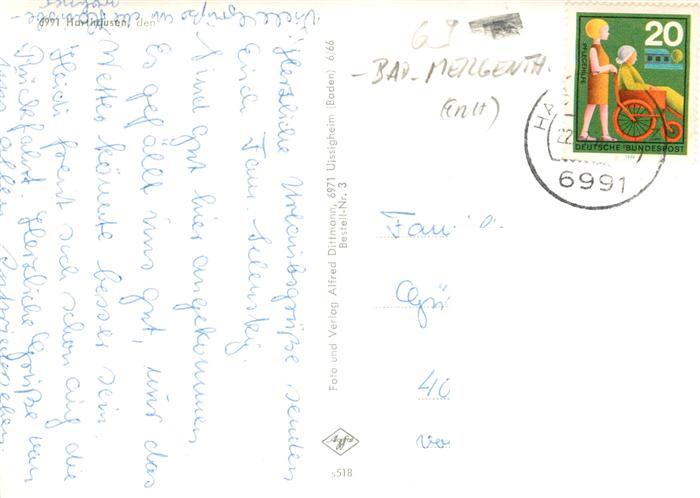 6991 Harthausen, den
Herzliche Urlaubsgrüße senden
Euch Fam.
Sind gut hier angekommen
Es gefällt uns gut, nur das
Wetter könnte besser sein.
freut sich schon auf die
Rückfahrt. Herzliche Grüße von
Foto und Verlag Alfred Dittmann, 6971 Uissigheim (Baden) 6/66
Bestell-Nr. 3
Agfa
s518
69
-BAD-MERGENTH.
PFLEGEHILFE
20
DEUTSCHE BUNDESPOST
HA
22
6991
Fam
40